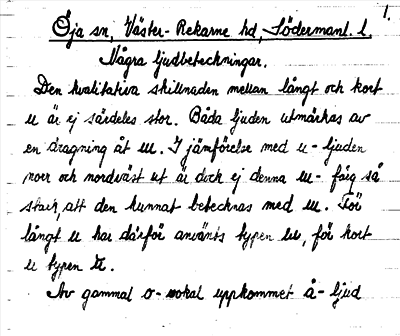 1.
Öja sn, Väster-Rekarne hd, Södermanl. l.
Några ljudbeteckningar.
Den kvalitativa skillnaden mellan långt och kort
u är ej särdeles stor. Båda ljuden utmärkas av
en dragning åt ɯ. I jämförelse med u-ljuden
norr och nordväst ut är dock ej denna ɯ-färg så
stark, att den kunnat betecknas med ɯ. För
långt u har därför använts typen, för kort
u typen.
Av gammal o-vokal uppkommet å-ljud